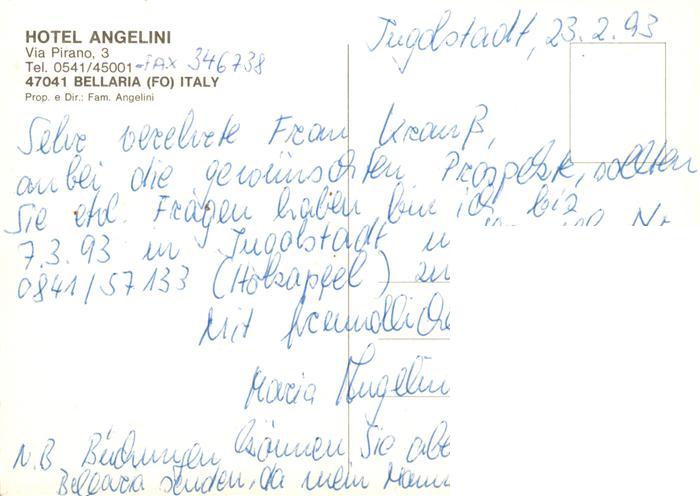 HOTEL ANGELINI
Via Pirano, 3
Tel. 0541/45001 - FAX 346738
47041 BELLARIA (FO) ITALY
Prop. e Dir.: Fam. Angelini
Ingolstadt, 23.2.93
Sehr verehrte Frau Krauß,
anbei die gewünschten Prospekte, sollten
Sie etl. Fragen haben bin ich bis
7.3.93 in Ingolstadt
0841/57133 (Holzapfel)
Mit freundliche
Maria Angelin
N.B Buchungen können Sie abe
Bellaria senden, da mein Mann